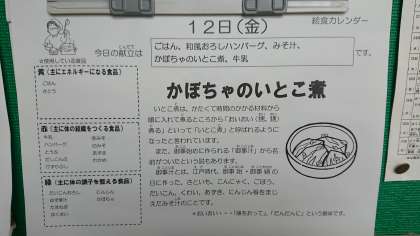 12日(金)
給食カレンダー
今日の献立は
ごはん、和風おろしハンバーグ、みそ汁、
かぼちゃのいとこ煮、牛乳
です。
☆使用している食品
黄(主にエネルギーになる食品)
ごはん
さとう
赤(主に体の組織をつくる食品)
牛乳
ハンバーグ
とうふ
みそ
あずき
わかめ
緑(主に体の調子を整える食品)
だいこん
かぼちゃ
かぼちゃのいとこ煮
いとこ煮は、かたくて時間のかかる材料から
順に入れて煮るところから「おいおい(甥、甥)
煮る」とって「いとこ煮」と呼ばれるように
なったと言われています。
また、御事始めに作られる「御事汁」から名
前がついたという説もあります。
御事汁とは、江戸時代、御事始・御事納の
日に作った、さといも、こんにゃく、ごぼう、
だいこん、くわい、あずき、にんじん等をまじ
えたみそ汁のことです。
*おいおい・・・「後を追って」、「だんだんに」という意味です。